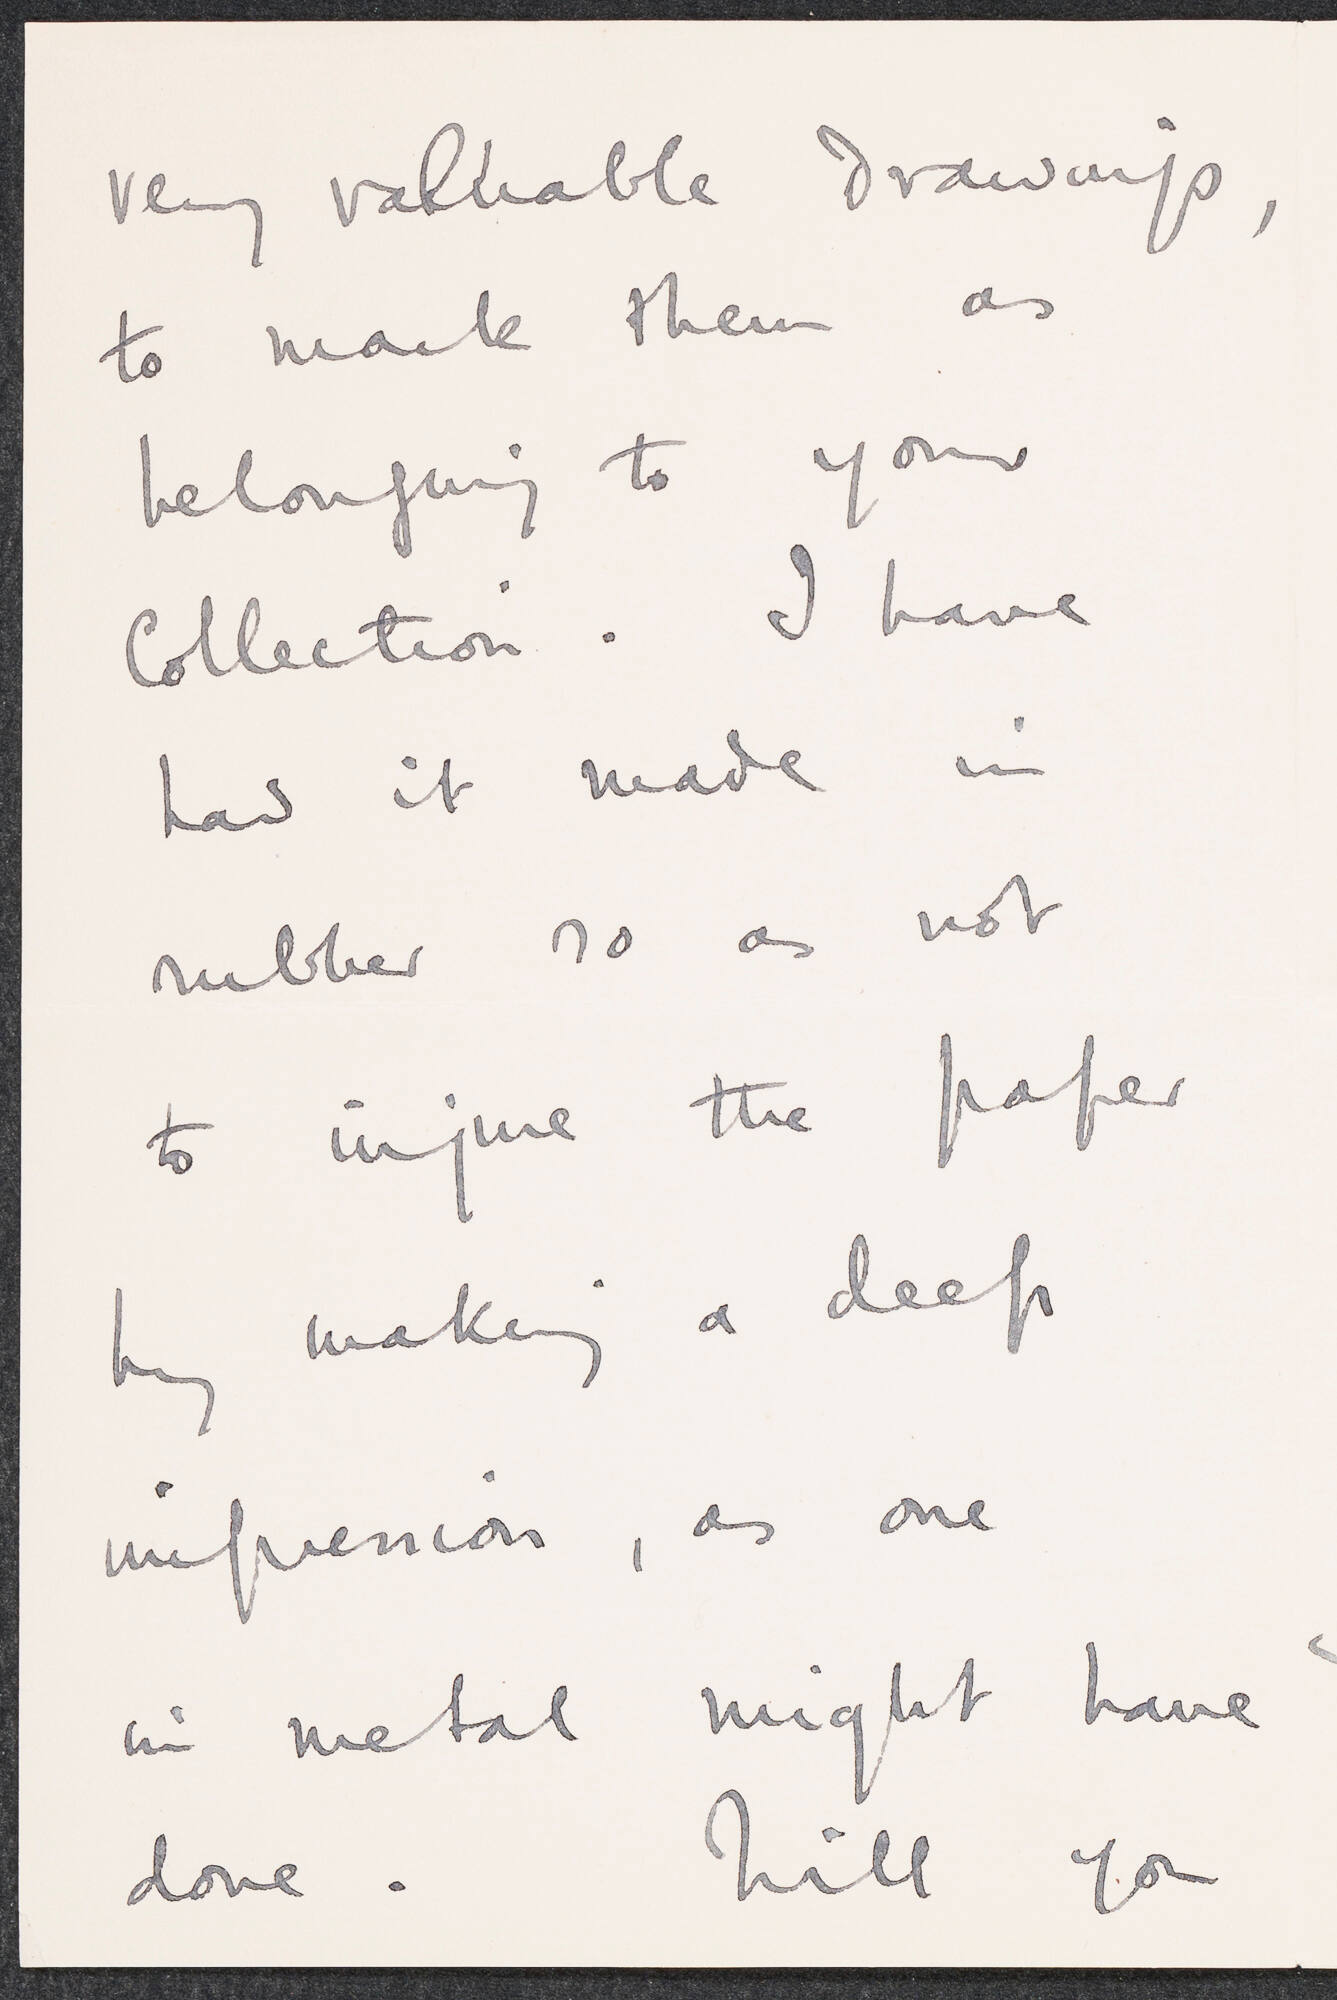 very valuable Drawings,
to mark them as
belonging to your
Collection. I have
had it made in
rubber so as not
to injure the paper
by making a deep
impression, as one
in metal might have
done. Will you